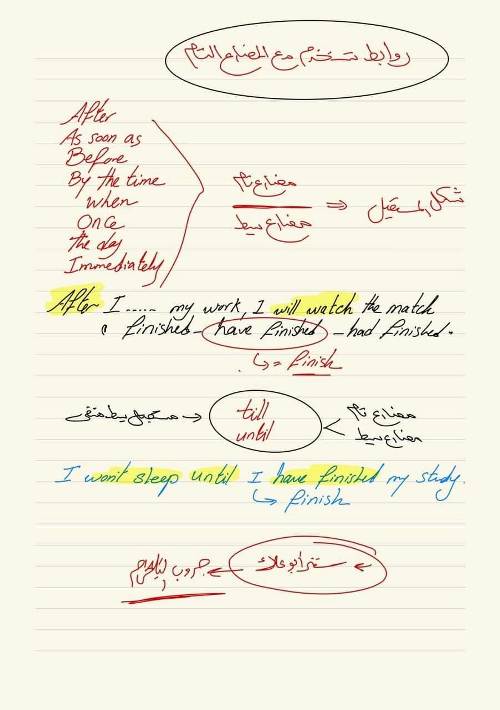 روابط تستخدم مع المضارع التام
After
As soon as
Before
By the time
when
Once
the day
Immediately
مضارع تام
مضارع بسيط
⇒ شكل المستقبل
After I ..... my work, I will watch the match
( finished - have finished - had finished.
↳ = finish
مستقبل بسيط منفى → till until < مضارع تام
مضارع بسيط
I won't sleep until I have finished my study.
↳ finish
← مستر أبو علاء ← جروب